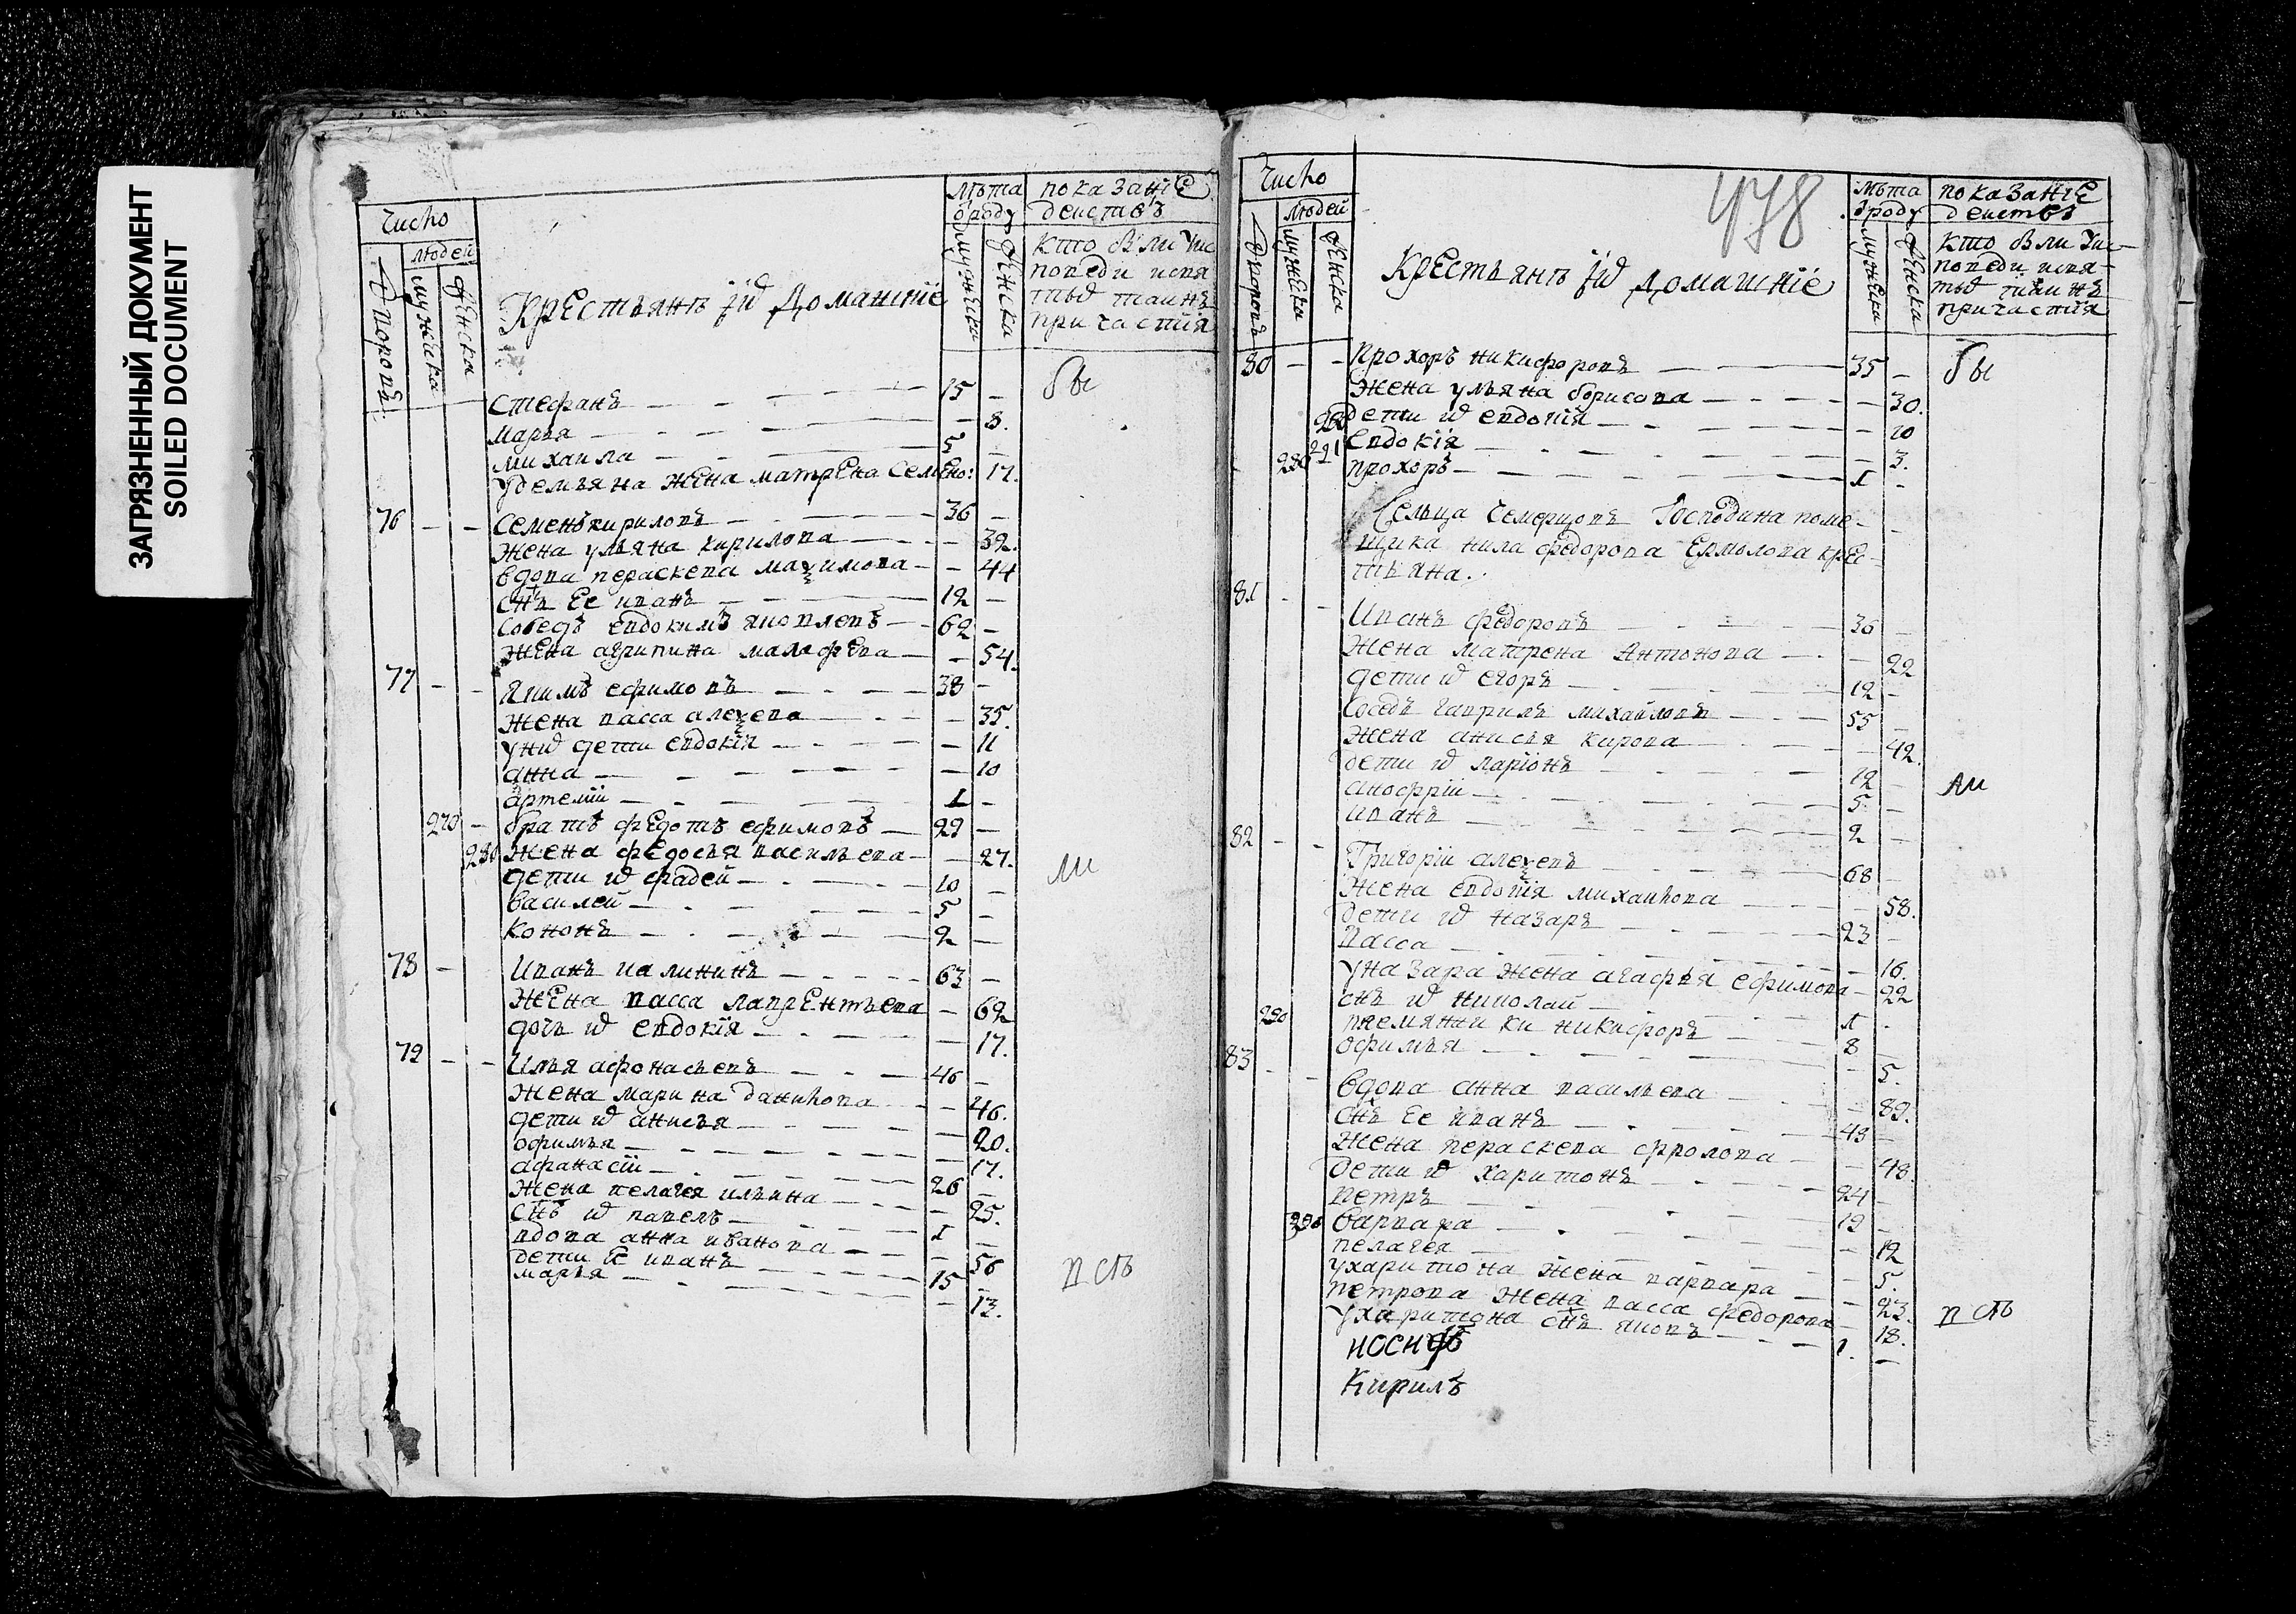 ЗАГРЯЗНЕННЫЙ ДОКУМЕНТ
SOILED DOCUMENT
Число
людей
Дворовъ
мужска
женска
Крестьянъ и домашние
лѣта
от роду
мужска
женска
показание
деиствъ
кто былъ у ис
поведи и свя
тыхъ таинъ
причастия
Стефанъ 15 – бы
Марья – 8.
Михаила 5 –
У демьяна жена матрена Семено: 17.
76 – – Семенъ кириловъ 36 –
жена ульяна кирилова – 32.
вдова параскева маѯимова – 44
снъ ее иванъ 12 –
Соседъ евдокимъ яковлевъ 62 –
жена агрипина малафеева – 54.
77 – – Якимъ ефимовъ 38 –
жена васса алеѯева – 35.
у них дети евдокїя – 11
анна – 10
артемїй 1 –
270 – братъ федотъ ефимовъ 29 –
280 жена федосья васильева – 27.
дети их фадей 10 – ли
василей 5 –
кононъ 2 –
78 – Иванъ калининъ 63 –
жена васса лаврентьева – 62
дочь их евдокїя – 17.
79 – – Илья афонасьевъ 46 –
жена марина данилова – 46.
дети их анисья – 20.
офимья – 17.
афанасїй 26 –
жена пелагея ильина – 25.
снъ их павелъ 1 –
вдова анна иванова – 56
дети ее иванъ 15 – в сл
марья – 13.
478
Число
людей
Дворовъ
мужска
женска
Крестьянъ и домашнїе
лѣта
от роду
мужска
женска
показанїе
деиствъ
кто былъ у ис–
поведи и свя–
тыхъ таинъ
причастия
80 – – Прохоръ никифоровъ 35 – бы
жена ульяна борисова – 30.
290 дети их евдокїя – 10
291 евдокїя – 3.
280 прохоръ 1 –
Сельца Чемерцовъ Господина поме–
щика нила федорова Ермолова крес–
тьяна.
81 – – Иванъ федоровъ 36 –
жена матрена Антонова – 22
дети их егоръ 12 –
Соседъ гаврилъ михайловъ 55 –
жена анисья кирова – 42.
дети их ларїонъ 12 – ли
анофрїй 5 –
иванъ 2 –
82 – – Григорїй алеѯевъ 68 –
жена евдокїя михаилова – 58.
дети их назаръ 23 –
васса – 16.
у назара жена агафья ефимова – 22
снъ их николай 1 –
290 племянники никифоръ 8 –
офимья – 5.
83 – – вдова анна васильева – 82.
снъ ее иванъ 48 –
жена параскева фролова – 48.
дети их харитонъ 24 –
петръ 19 –
300 варвара – 12
пелагея – 5.
у харитона жена варвара – 23. в сл
петрова жена васса федорова – 18.
у харитона снъ яковъ 1. –
иосифъ
Кирилъ